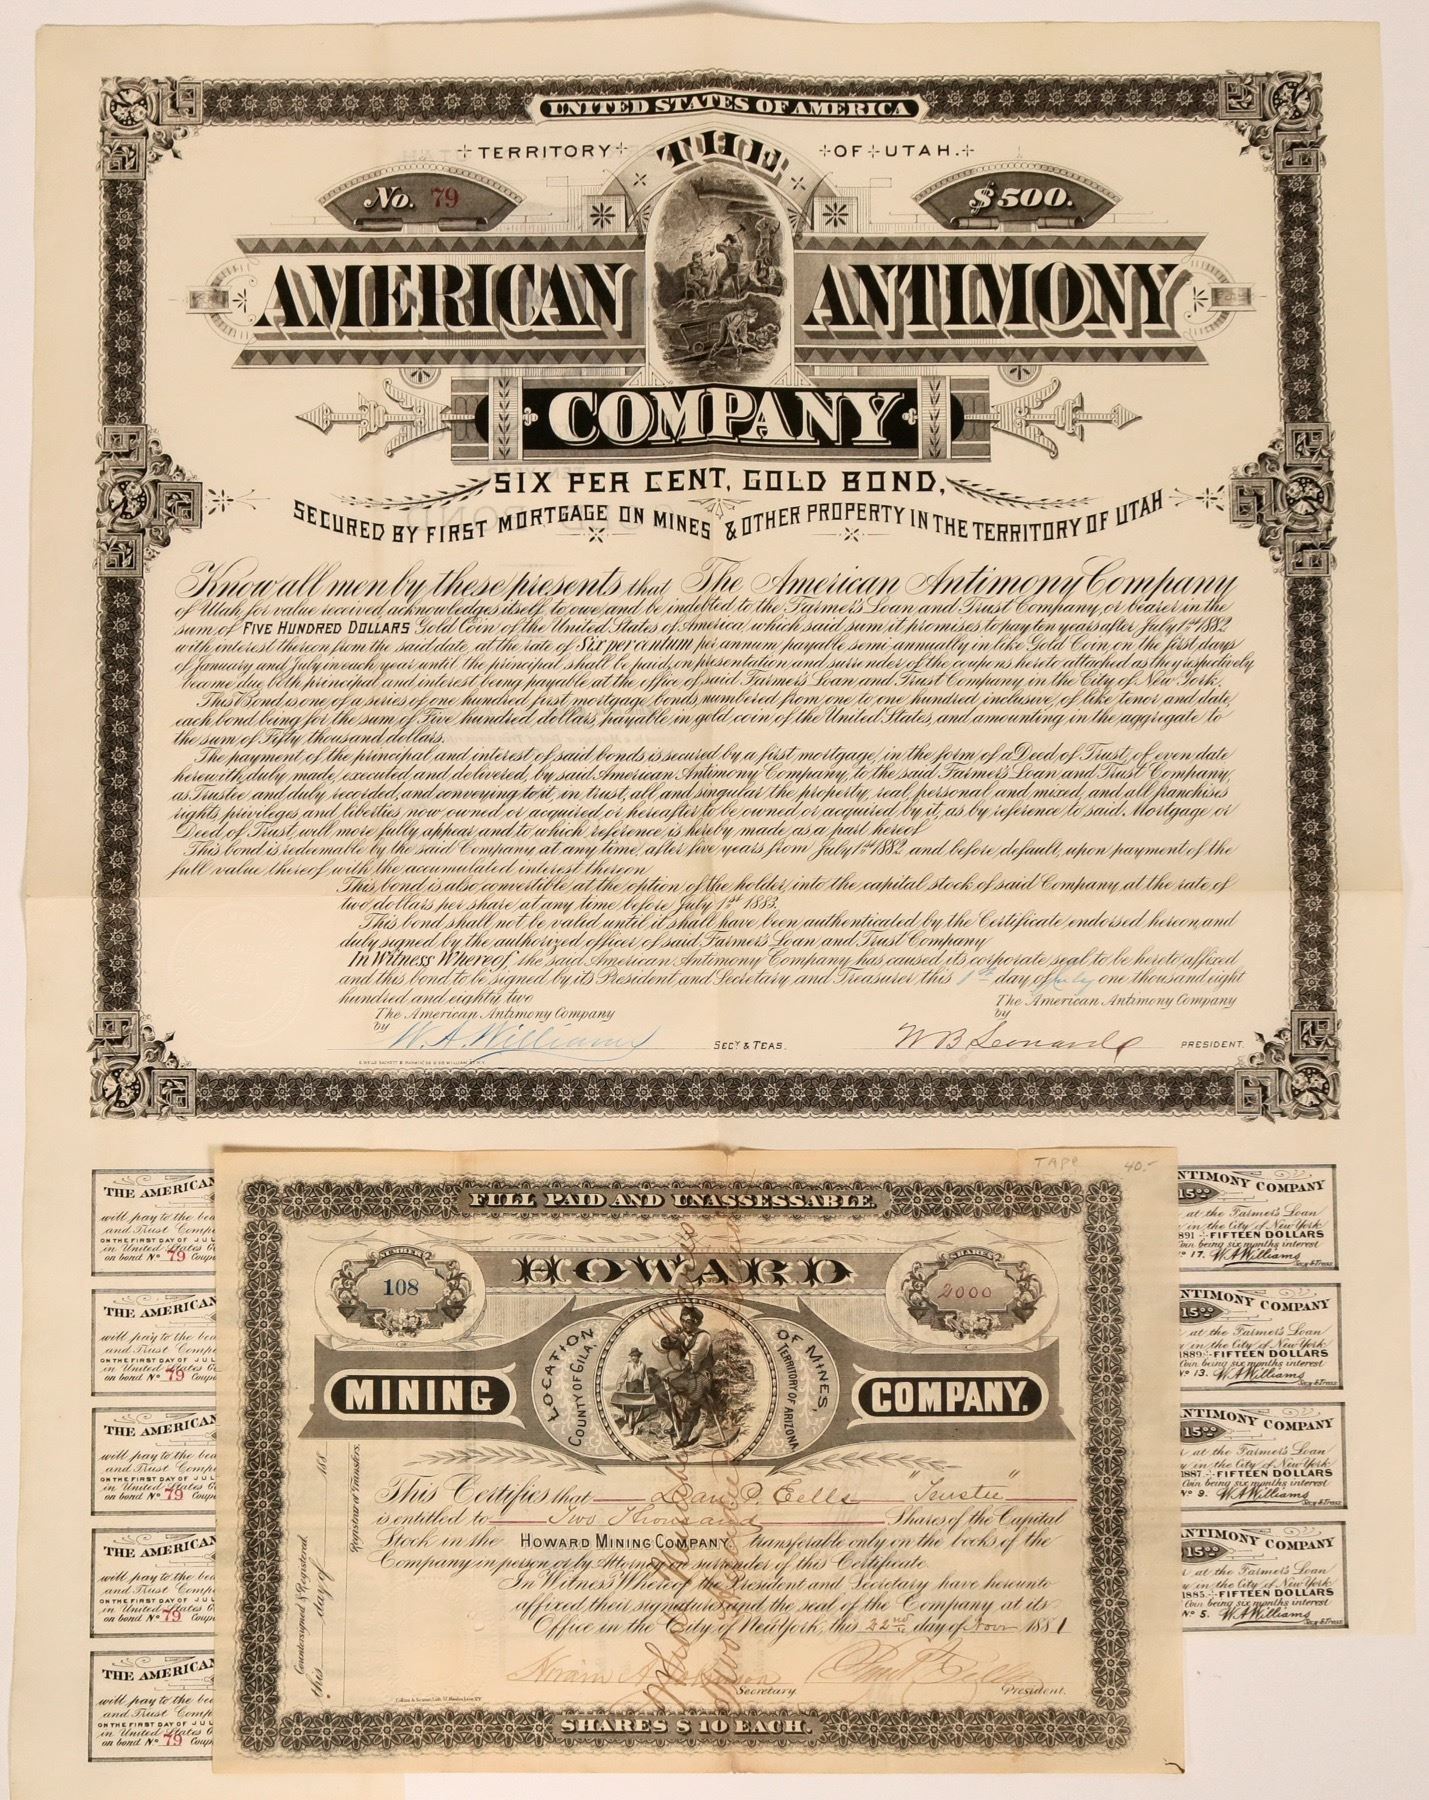 UNITED STATES OF AMERICA
TERRITORY OF UTAH.
THE
No. 79
$500.
AMERICAN ANTIMONY
COMPANY
SIX PER CENT, GOLD BOND,
SECURED BY FIRST MORTGAGE ON MINES & OTHER PROPERTY IN THE TERRITORY OF UTAH
Know all men by these presents that The American Antimony Company
of Utah for value received acknowledges itself to owe and be indebted to the Farmer's Loan and Trust Company, or bearer in the
sum of FIVE HUNDRED DOLLARS Gold Coin of the United States of America, which said sum it promises to pay ten years after July 1st 1882
with interest thereon from the said date, at the rate of Six per centum per annum payable semi-annually in like Gold Coin on the first days
of January and July in each year until the principal shall be paid, on presentation and surrender of the coupons hereto attached as they respectively
become due, both principal and interest being payable at the office of said Farmer's Loan and Trust Company in the City of New York.
This Bond is one of a series of one hundred first mortgage bonds, numbered from one to one hundred inclusive, of like tenor and date,
each bond being for the sum of Five hundred dollars, payable in gold coin of the United States, and amounting in the aggregate to
the sum of Fifty thousand dollars.
The payment of the principal and interest of said bonds is secured by a first mortgage, in the form of a Deed of Trust, of even date
herewith, duly made, executed and delivered, by said American Antimony Company, to the said Farmer's Loan and Trust Company,
as Trustee and duly recorded, and conveying to it, in trust, all and singular the property, real, personal and mixed, and all franchises
rights privileges and liberties now owned or acquired or hereafter to be owned or acquired by it, as by reference to said Mortgage or
Deed of Trust, will more fully appear and to which reference is hereby made as a part hereof
This bond is redeemable by the said Company at any time after five years from July 1st 1882 and before default, upon payment of the
full value thereof with the accumulated interest thereon
This bond is also convertible at the option of the holder, into the capital stock of said Company, at the rate of
two dollars per share at any time before July 1st 1883.
This bond shall not be valid until it shall have been authenticated by the Certificate endorsed hereon, and
duly signed by the authorized officer of said Farmer's Loan and Trust Company
In Witness Whereof the said American Antimony Company has caused its corporate seal to be hereto affixed
and this bond to be signed by its President and Secretary and Treasurer this 1st day of July one thousand eight
hundred and eighty two
The American Antimony Company
The American Antimony Company
by W. A. Williams SECY & TEAS.
by W B Leonard PRESIDENT.
THE AMERICAN
will pay to the bea
and Trust Comp
ON THE FIRST DAY OF JUL
in United States G
on bond No 79 Coup
THE AMERICAN
will pay to the bea
and Trust Comp
ON THE FIRST DAY OF JUL
in United States G
on bond No 79 Coup
THE AMERICAN
will pay to the bea
and Trust Comp
ON THE FIRST DAY OF JUL
in United States G
on bond No 79 Coup
THE AMERICAN
will pay to the bea
and Trust Comp
ON THE FIRST DAY OF JUL
in United States G
on bond No 79 Coup
THE AMERICAN
will pay to the bea
and Trust Comp
ON THE FIRST DAY OF JUL
in United States G
on bond No 79 Coup
TAPE 40.-
FULL PAID AND UNASSESSABLE.
NUMBER
108
HOWARD
SHARES
2000
MINING
COMPANY.
LOCATION OF MINES,
COUNTY OF GILA, TERRITORY OF ARIZONA
Countersigned & Registered
this day of 188
Registrar of Transfers.
This Certifies that Dan P. Eells "Trustee"
is entitled to Two Thousand Shares of the Capital
Stock in the HOWARD MINING COMPANY, transferable only on the books of the
Company in person or by Attorney on surrender of this Certificate.
In Witness Whereof the President and Secretary have hereunto
affixed their signatures and the seal of the Company at its
Office in the City of New York, this 22nd day of Novr 1881
Secretary.
President.
SHARES $10 EACH.
NTIMONY COMPANY
15.00
at the Farmer's Loan
in the City of New York
891 FIFTEEN DOLLARS
Coin being six months interest
No 17. W. A. Williams
Secy & Treas
NTIMONY COMPANY
15.00
at the Farmer's Loan
in the City of New York
1889 FIFTEEN DOLLARS
Coin being six months interest
No 13. W. A. Williams
Secy & Treas
NTIMONY COMPANY
15.00
at the Farmer's Loan
in the City of New York
1887 FIFTEEN DOLLARS
Coin being six months interest
No 9. W. A. Williams
Secy & Treas
NTIMONY COMPANY
15.00
at the Farmer's Loan
in the City of New York
1885 FIFTEEN DOLLARS
Coin being six months interest
No 5. W. A. Williams
Secy & Treas